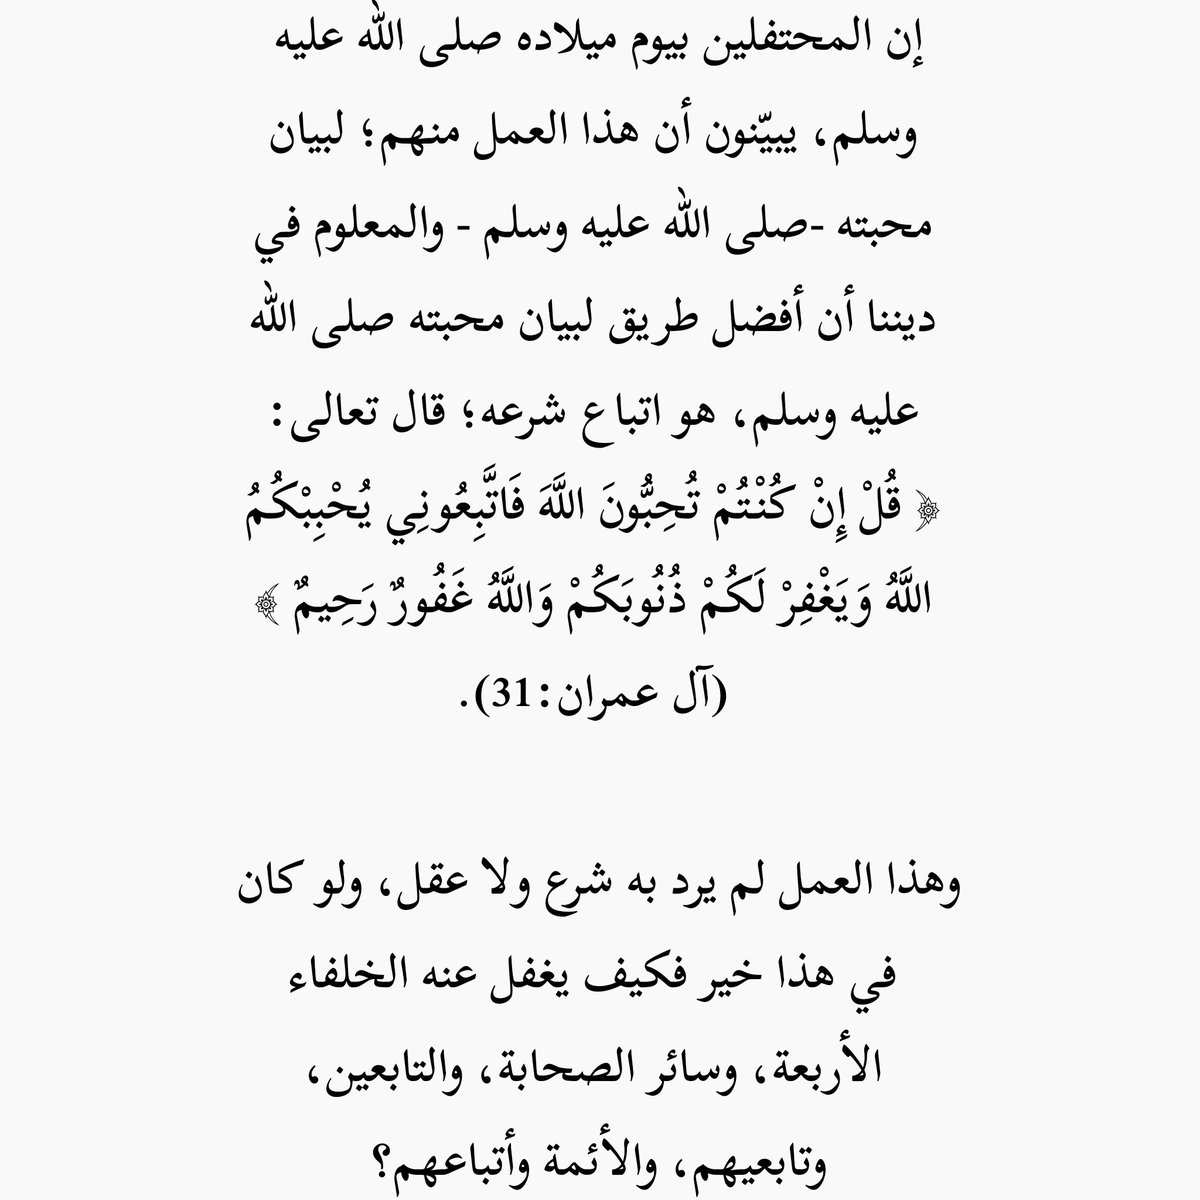 إن المحتفلين بيوم ميلاده صلى الله عليه
وسلم، يبيّنون أن هذا العمل منهم؛ لبيان
محبته -صلى الله عليه وسلم - والمعلوم في
ديننا أن أفضل طريق لبيان محبته صلى الله
عليه وسلم، هو اتباع شرعه؛ قال تعالى:
﴿ قُلْ إِنْ كُنْتُمْ تُحِبُّونَ اللَّهَ فَاتَّبِعُونِي يُحْبِبْكُمُ
اللَّهُ وَيَغْفِرْ لَكُمْ ذُنُوبَكُمْ وَاللَّهُ غَفُورٌ رَحِيمٌ ﴾
(آل عمران:31).
وهذا العمل لم يرد به شرع ولا عقل، ولو كان
في هذا خير فكيف يغفل عنه الخلفاء
الأربعة، وسائر الصحابة، والتابعين،
وتابعيهم، والأئمة وأتباعهم؟